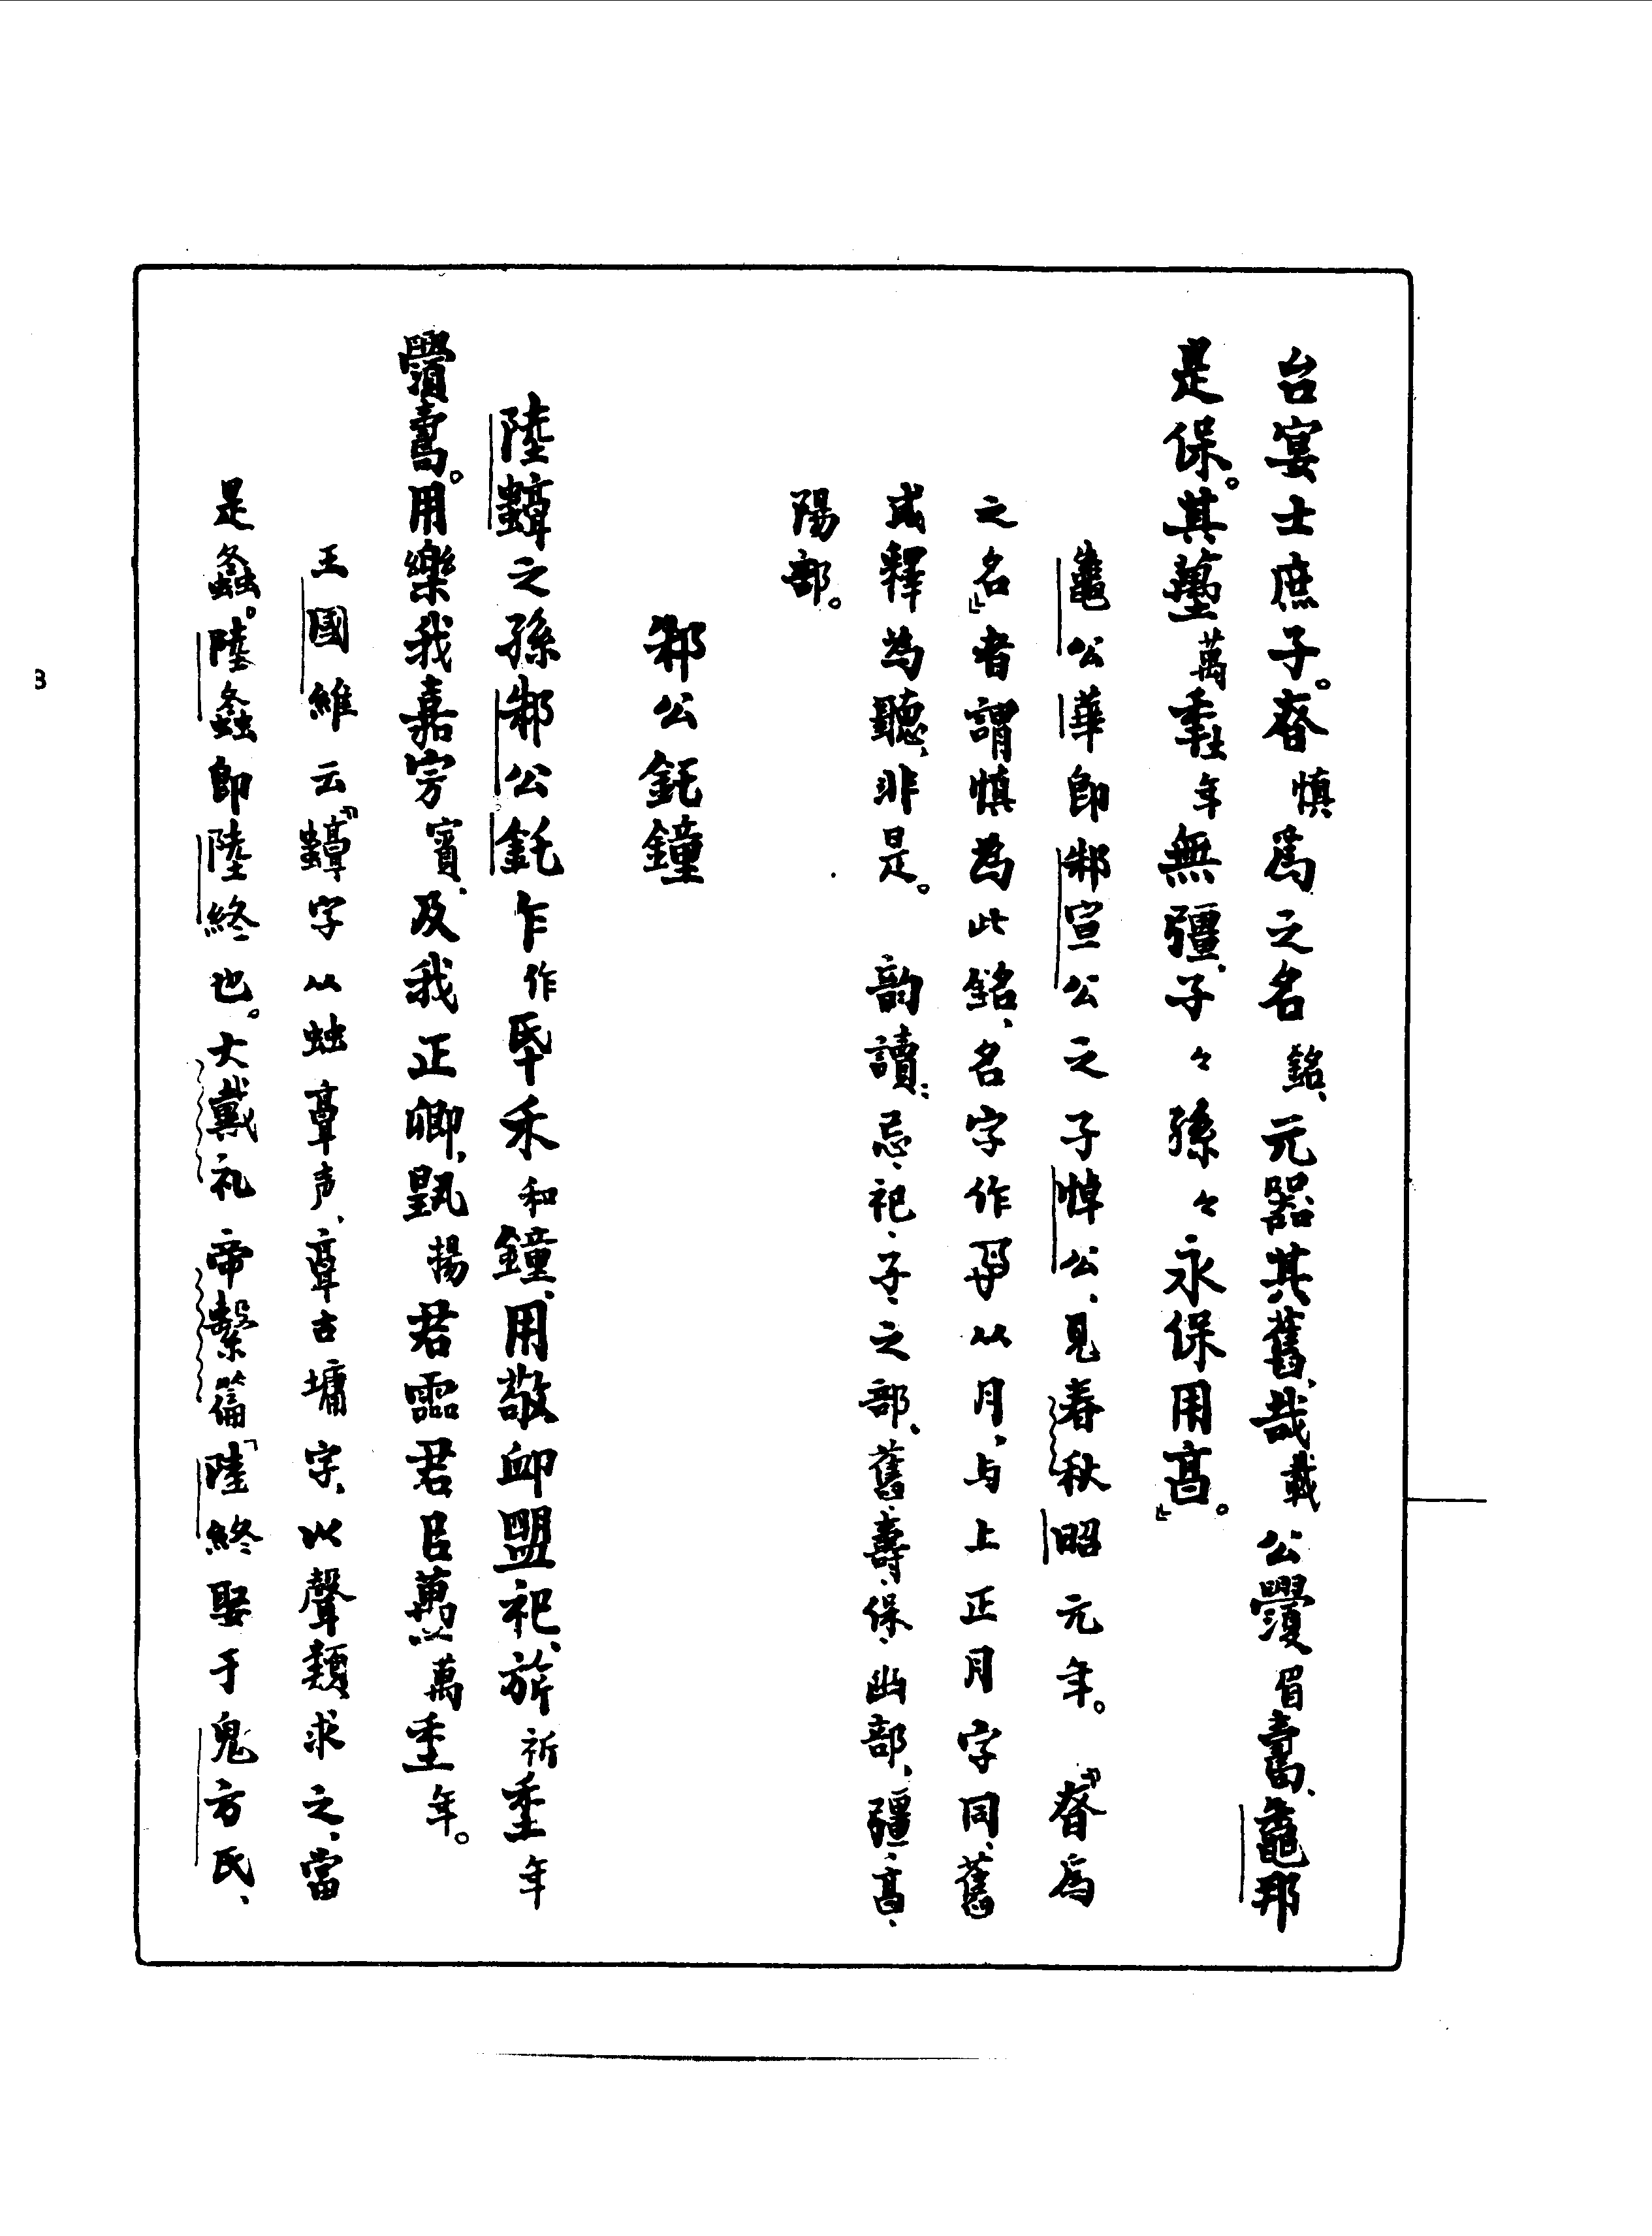 台宴士庶子。昚慎爲之名銘、元器其舊、哉載公眉壽、鼄邦
是保。其萬年無疆、子々孫々永保用亯。」
鼄公華即邾宣公之子悼公、見春秋昭元年。「昚爲
之名」者謂慎為此銘、名字作从月、与上正月字同、舊
或釋為聽、非是。 韵讀：忌、祀、子、之部、舊、壽、保、幽部、疆、亯、
陽部。
邾公釛鐘
陸𧖟之孫邾公釛乍作氒禾和鐘、用敬卹盟祀、旂祈年
壽。用樂我嘉宾賓、及我正卿、揚君霝君㠯萬年。
王國維云「𧖟字从䖵𩫖声、𩫖古墉字、以聲類求之、當
是螽。陸螽即陸終也。大戴礼帝繫篇「陸終娶于鬼方氏、
B